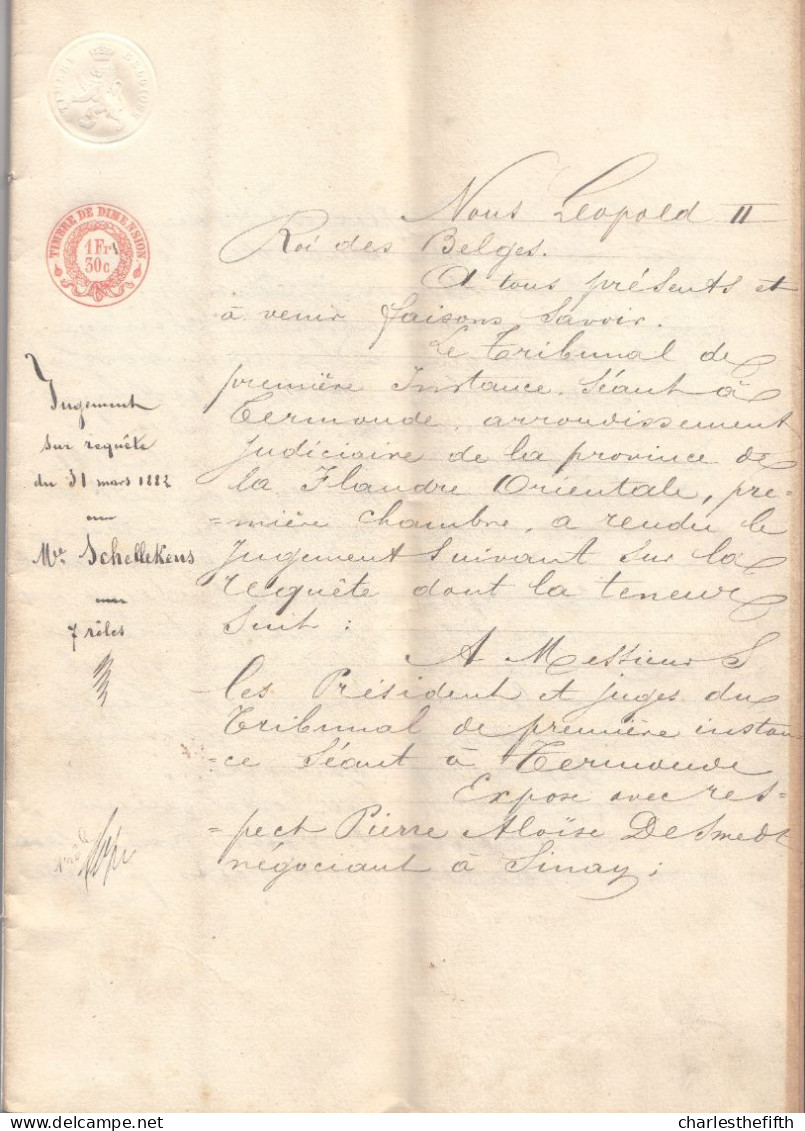 TIMBRE BELGIQUE
TIMBRE DE DIMENSION
1 Fr
30 c
Jugement
sur requête
du 31 mars 1882
Mtre Schellekens
7 rôles
Nous Léopold II
Roi des Belges.
A tous présents et
à venir faisons savoir.
Le Tribunal de
première Instance, séant à
Termonde, arrondissement
judiciaire de la province de
la Flandre Orientale, pre-
=mière chambre, a rendu le
jugement suivant sur la
requête dont la teneur
suit :
A Messieurs
les Président et juges du
Tribunal de première instan
=ce séant à Termonde
Expose avec res=
=pect Pierre Aloïse De Smedt
négociant à Sinay ;
charlesthefifth